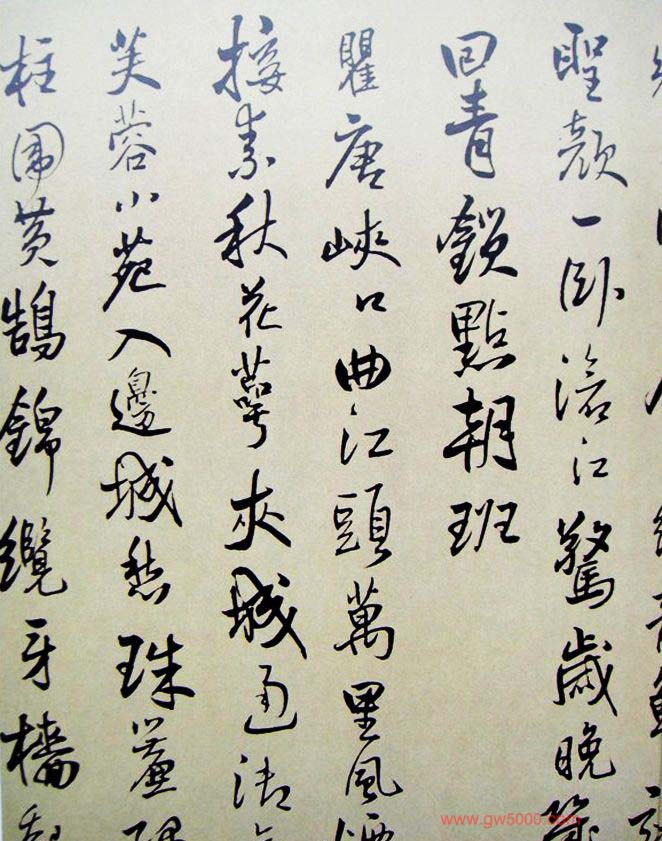 聖顏一卧滄江驚歲晚
回青鎖點朝班
瞿唐峽口曲江頭萬里風煙
接素秋花萼夾城通御
芙蓉小苑入邊城愁珠簾
柱圍黃鵠錦纜牙檣起
www.gw5000.com